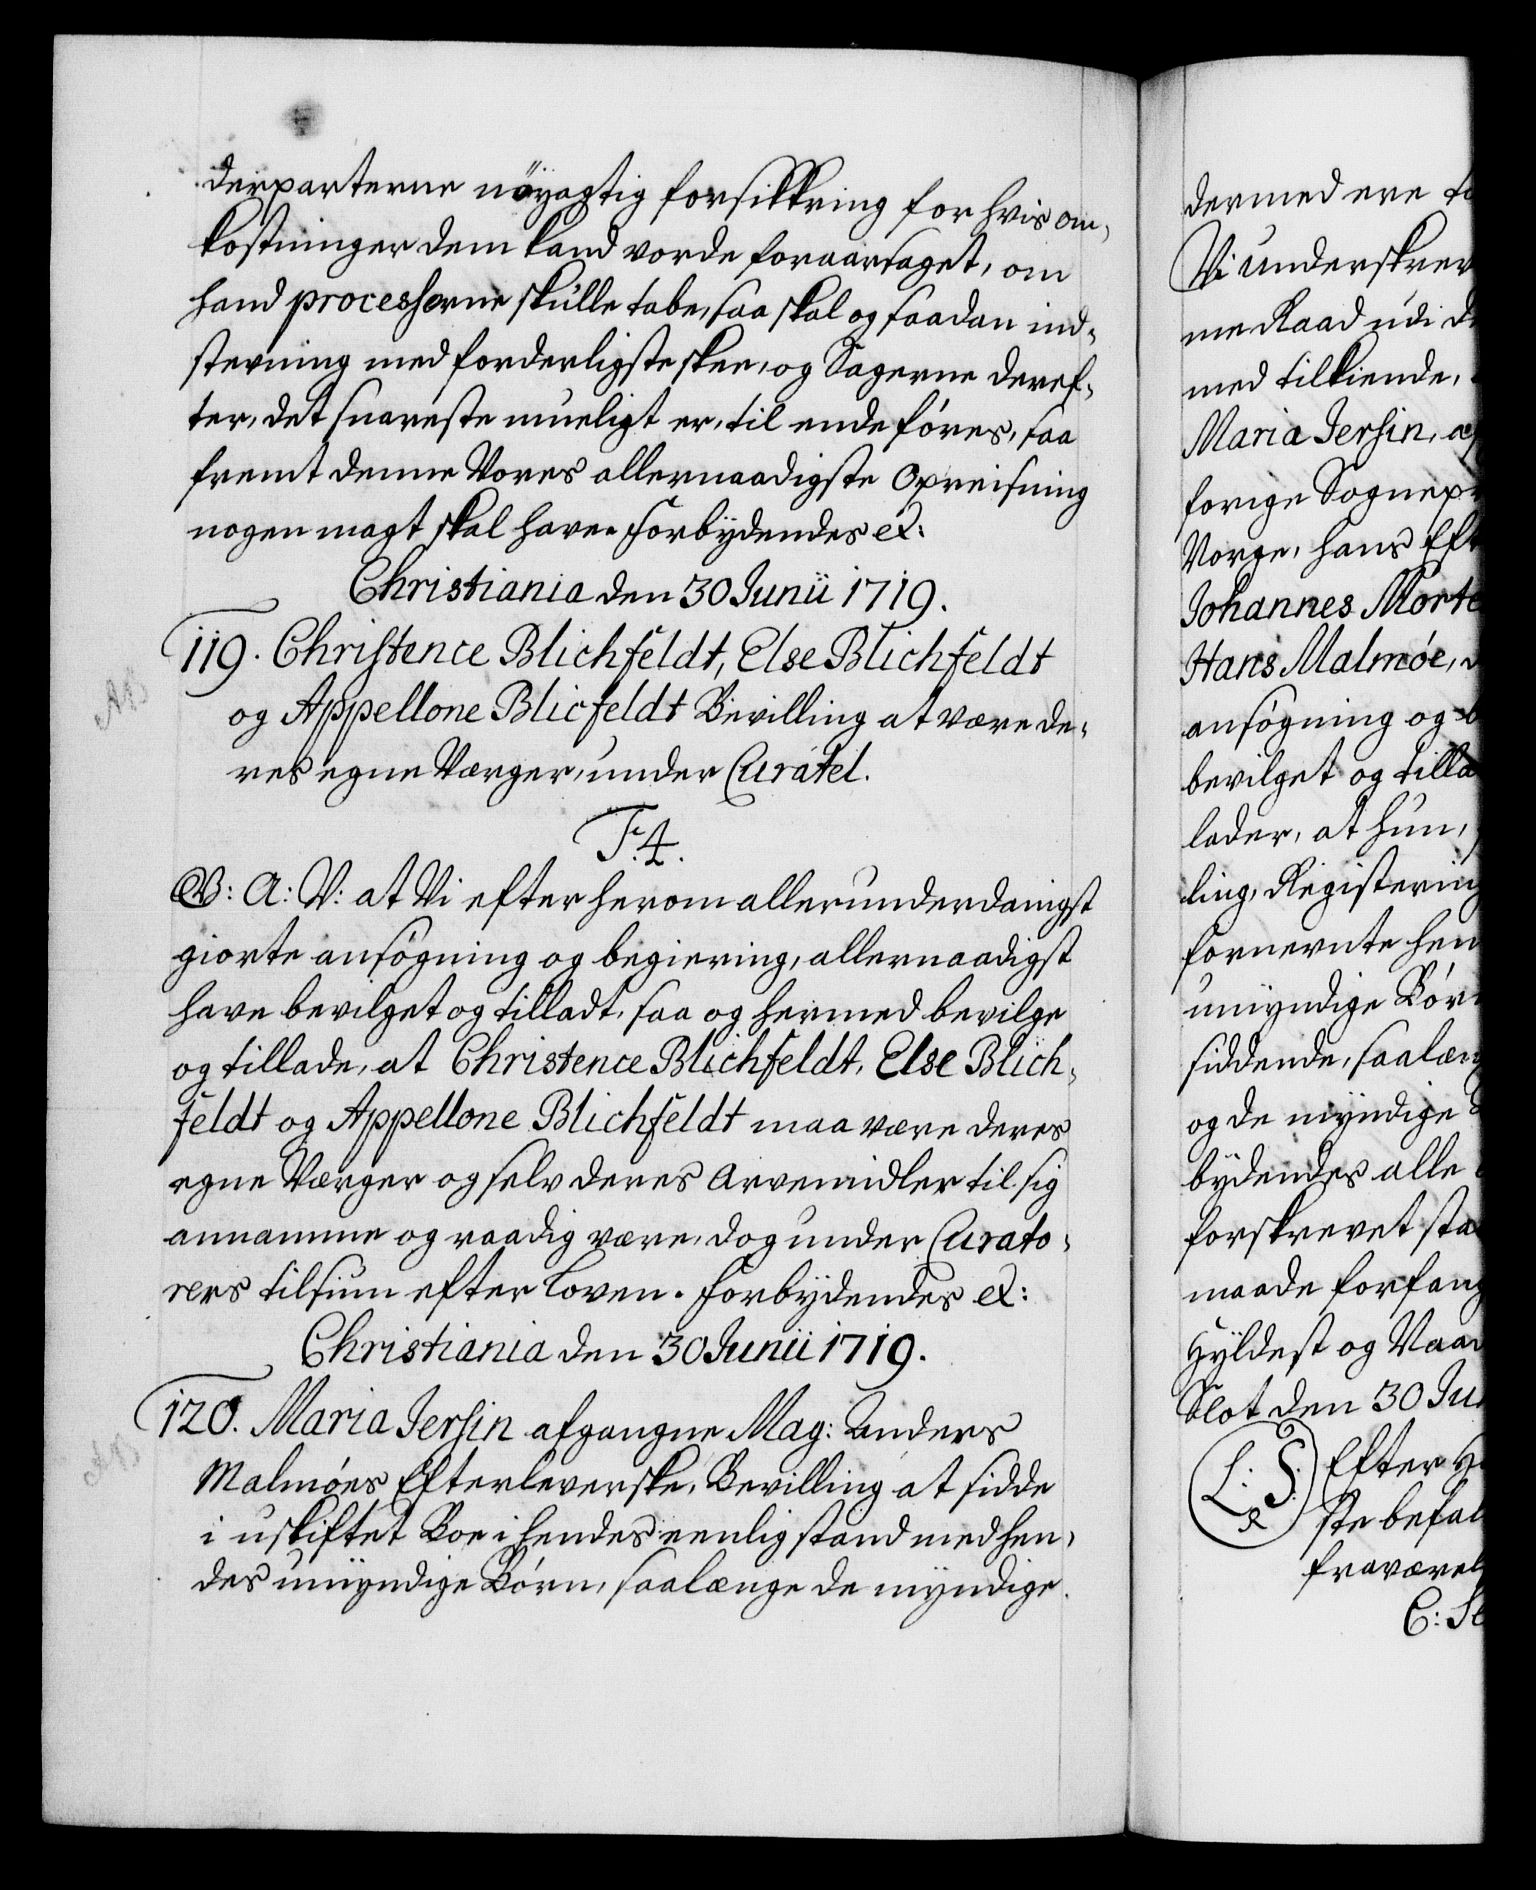 derparterne nöyagtig forsikkring for hvis om,
kostninger dem kand vorde foraarsaget, om
hand processerne skulle tabe, saa skal og saadan ind,
stevning med forderligste skee, og Sagerne deref,
ter, det snareste mueligt er, til ende föres, saa
fremt denne Vores allernaadigste Opreisning
nogen magt skal have. Forbydendes &:
Christiania den 30 Junii 1719.
119. Christence Blichfeldt, Else Blichfeldt
og Appellone Blicfeldt Bevilling at være de,
res egne Værger, under Curatel.
F. 4.
G: A: V: at Vi efter herom allerunderdanigst
giorte ansögning og begiering, allernaadigst
have bevilget og tilladt, saa og hermed bevilge
og tillade, at Christence Blichfeldt, Else Blich,
feldt og Appellone Blichfeldt maa være deres
egne Værger og selv deres arvemidler til sig
annamme og raadig være, dog under Curato,
rers tilsiun efter Loven. Forbydendes &:
Christiania den 30 Junii 1719.
120. Maria Jersin afgangne Mag: Anders
Malmöes Efterleverske, Bevilling at sidde
i uskiftet Boe i hendes eenlig stand med hen,
des umyndige Börn, saalænge de myndige
dermed ere
Vi underskrev
me Raad udi
med tilkiende,
Maria Jersin,
forige Sognepr
Norge, hans Eft
Johannes Morte
Hans Malmöe,
ansögning og
bevilget og tilla
lader, at hun,
ling, Registering
fornevnte hen
umyndige Börn
siddende, saalæn
og de myndige
bydendes alle
forskrevet sta
maade forfang
Hyldest og Naad
Slot den 30 Jun
L. S. Efter
ste befal
fraværel
C: